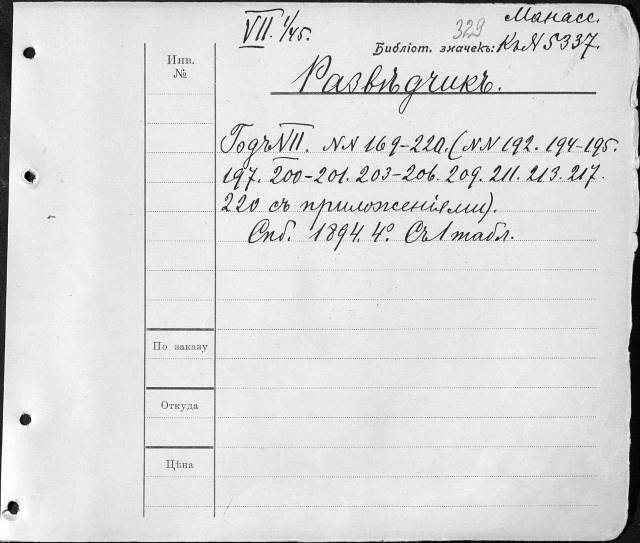 VII. 1/45.
329
Манасс.
Библіот. значекъ: Къ N 5337.
Инв.
№
Развѣдчикъ.
Годъ VII. NN 169-220. (NN 192. 194-195.
197. 200-201. 203-206. 209. 211. 213. 217.
220 съ приложеніями).
Спб. 1894. 4°. Съ 1 табл.
По заказу
Откуда
Цѣна